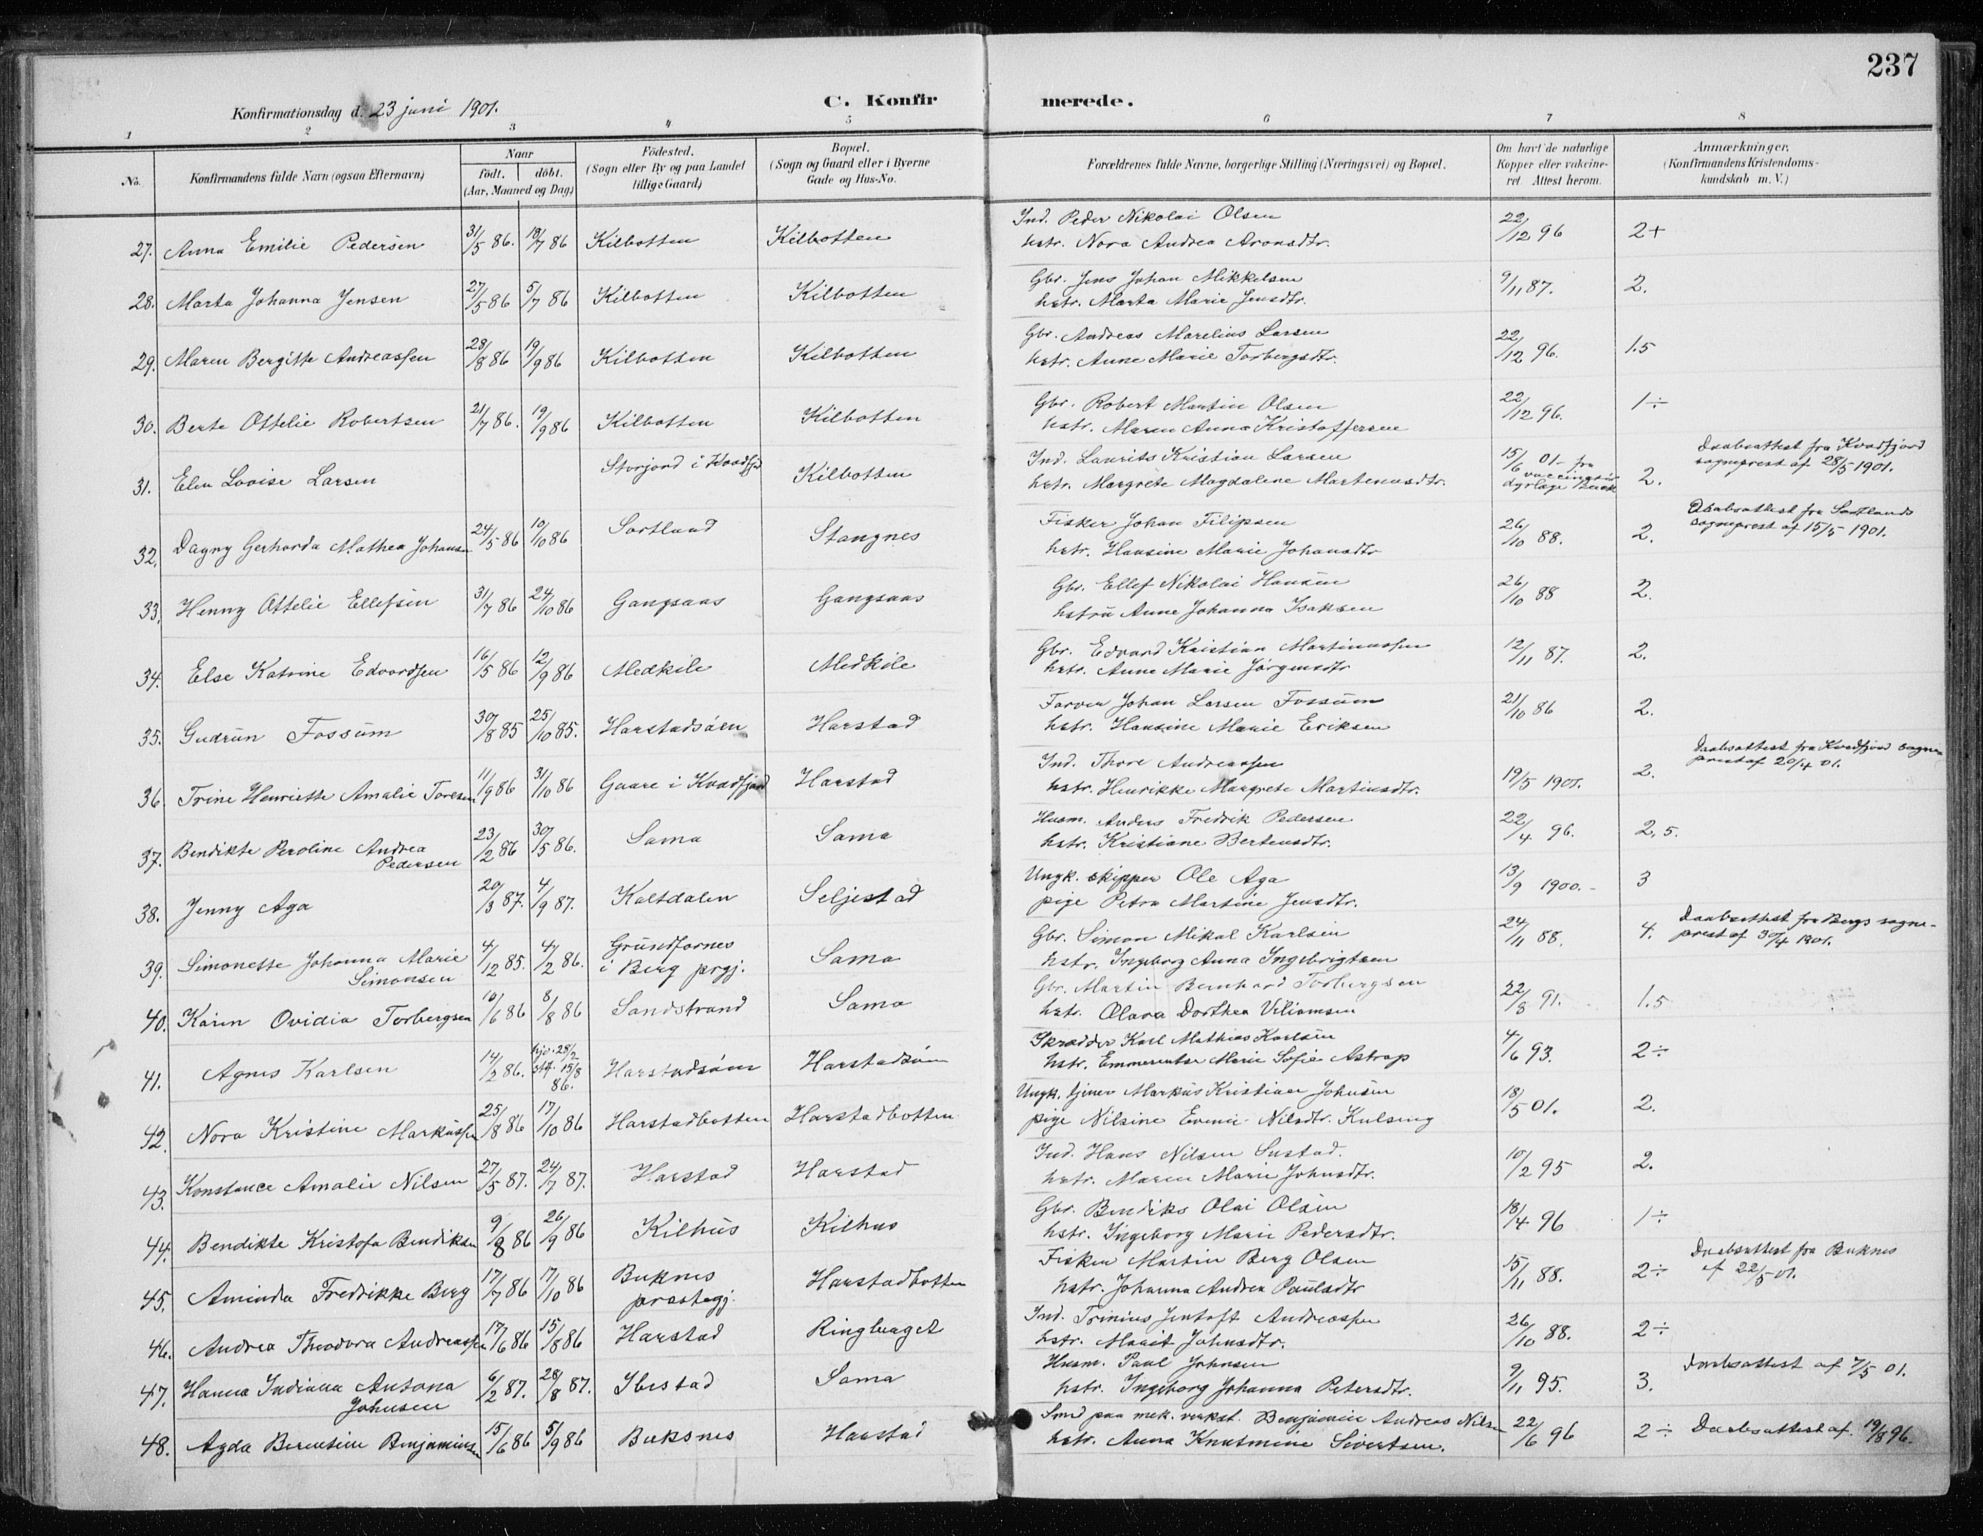 237
Konfirmationsdag d. 23 juni 1901. C. Konfirmerede.
1 2 3 4 5 6 7 8
No. Konfirmandens fulde Navn (ogsaa Efternavn) Naar födt. döbt. (Aar, Maaned og Dag) Födested. (Sogn eller By og paa Landet tillige Gaard) Bopæl. (Sogn og Gaard eller i Byerne Gade og Hus-No. Forældrenes fulde Navne, borgerlige Stilling (Næringsvei) og Bopæl. Om havt de naturlige Kopper eller vakcineret. Attest herom. Anmærkninger. (Konfirmandens Kristendomskundskab m. V.)
27. Anna Emilie Pedersen 31/5 86. 18/7 86 Kilbotten Kilbotten Ind. Peder Nikolai Olsen 22/12 96 2+
hstr. Nora Andrea Aronsdtr.
28. Marta Johanna Jensen 27/5 86 5/7 86 Kilbotten Kilbotten Gbr. Jens Johan Mikkelsen 9/11 87. 2.
hstr. Marta Marie Jensdtr.
29. Maren Bergitte Andreassen 28/8 86 19/9 86 Kilbotten Kilbotten Gbr. Andreas Marelius Larsen 22/12 96. 1.5
hstr. Anne Marie Torbergsdtr.
30. Berte Ottelie Robertsen 21/7 86. 19/9 86 Kilbotten Kilbotten Gbr. Robert Martin Olsen 22/12 96. 1÷
hstr. Maren Anna Kristoffersen
31. Elen Lovise Larsen Storjord i Kvadfjd Kilbotten Ind. Laurits Kristian Larsen 15/6 01 - fra 2. Daabsattest fra Kvadfjord
hstr. Margrete Magdalene Martenusdtr. sogneprest af 28/5 1901.
32. Dagny Gerharda Mathea Johansen 24/5 86 10/10 86 Sortland Stangnes Fisker Johan Filipsen 26/10 88. 2. Daabsattest fra Sortlands
hstr. Hansine Marie Johansdtr sogneprest af 15/5 1901.
33. Henny Ottelie Ellefsen 31/7 86 24/10 86 Gangsaas Gangsaas Gbr. Ellef Nikolai Hansen 26/10 88 2.
hstru Anne Johanna Isaksen
34. Else Katrine Edvardsen 16/5 86 12/9 86 Medkile Medkile Gbr. Edvard Kristian Martinussen 12/11 87. 2.
hstr. Anne Marie Jörgensdtr
35. Gudrun Fossum 30/8 85 25/10 85. Harstadsöen Harstad Farver Johan Larsen Fossum 21/10 86 2.
hstr. Hansine Marie Eriksen
36. Trine Henriette Amalie Toresen 11/9 86 31/10 86 Gaare i Kvadfjord Harstad Ind. Thore Andreassen 19/5 1901. 2. Daabsattest fra Kvedfjord sogne-
hstr. Henrikke Margrete Martinsdtr. prest af 20/4 01.
37. Bendikte Peroline Andrea Pedersen 23/2 86 30/5 86. Sama Sama Husm. Anders Fredrik Pedersen 22/4 96. 2,5.
hstr. Kristiane Bertensdtr.
38. Jenny Aga 20/3 87. 4/9 87. Kaltdalen Seljestad Ungk. skipper Ole Aga 13/9 1900.- 3
pige Petra Martine Jensdtr.
39. Simonette Johanna Marie Simonsen 4/12 85. 4/2 86. Grundfornes i Berg prgj. Sama Gbr. Simon Mikal Karlsen 24/11 88. 4. Daabsattest fra Bergs sogne-
hstr. Ingeborg Anna Ingebrigtsen prest af 30/4 1901.
40. Karen Ovidia Torbergsen 10/6 86 8/8 86 Sandstrand Sama Gbr. Martin Bernhard Torbergsen 22/8 91. 1.5
hstr. Olava Dorthea Viliamsen
41. Agnes Karlsen 14/2 86. hjd. 28/2 stf. 15/8 86. Harstadsöen Harstadsöen Skrædder Karl Mathias Karlsen 4/6 93. 2÷
hstr. Emmerentse Marie Sofie Astrup
42. Nora Kristine Markussen 25/8 86 17/10 86 Harstadbotten Harstadbotten Ungk. tjener Markus Kristian Johnsen 18/5 01. 2.
pige Nilsine Nilsdtr.
43. Konstance Amalie Nilsen 27/5 87. 24/7 87. Harstad Harstad Ind. Hans Nilsen Sustad. 10/2 95 2.
hstr. Maren Marie Johnsdtr.
44. Bendikte Kristofa Bendiksen 9/8 86 26/9 86 Kilhus Kilhus Gbr. Bendiks Olai Olsen 18/4 96 1÷
hstr. Ingeborg Marie Pedersdtr.
45. Aminda Fredrikke Berg 17/7 86 17/10 86 Buknes prestegj. Harstadbotten Fisker Martin Berg Olsen 15/11 88. 2÷ Daabsattest fra Buknes
hstr. Johanna Andrea Paulsdtr af 22/5 01.
46. Andrea Theodora Andreassen 17/6 86 15/8 86 Harstad Ringberget Ind. Trinius Jentoft Andreassen 26/10 88. 2÷
hstr. Marit Johnsdtr.
47. Hanna Indiana Antona Johnsen 6/2 87. 28/8 87. Ibestad Sama Husm. Paul Johnsen 9/11 95. 3. Daabsattest af 7/5 01.
hstr. Ingeborg Johanna Petersdtr.
48. Agda Berentine Benjaminsen 15/6 86 5/9 86 Buksnes Harstad Smed paa mek. verkst. Benjamin Andreas Nilsen 22/6 96 2÷ Daabsattest af 19/8 96.
hstr. Anna Knutmine Sivertsen.